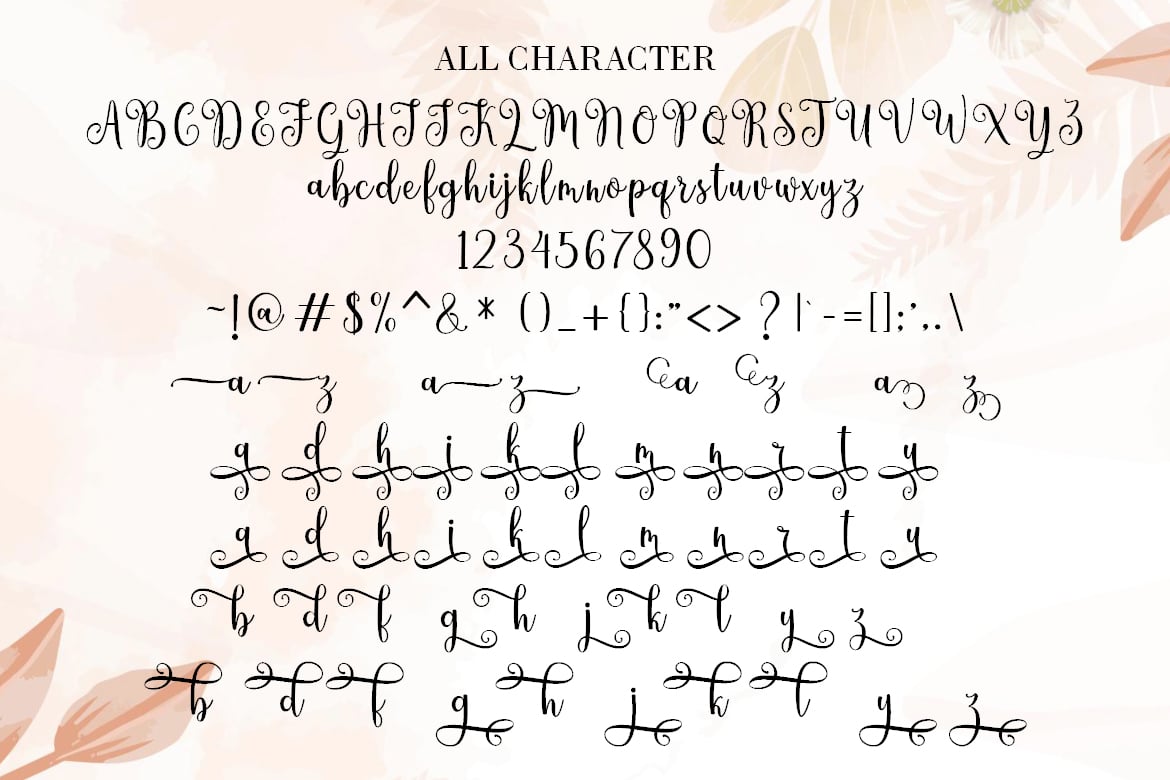 ALL CHARACTER
ABCDEFGHIJKLMNOPQRSTUVWXYZ
abcdefghijklmnopqrstuvwxyz
1234567890
~!@#$%^&* ()_+{}:"<>?|`-=[];',.\
a z a z a z a z
a d h i k l m n r t y
a d h i k l m n r t y
b d f g h j k l y z
b d f g h j k l y z